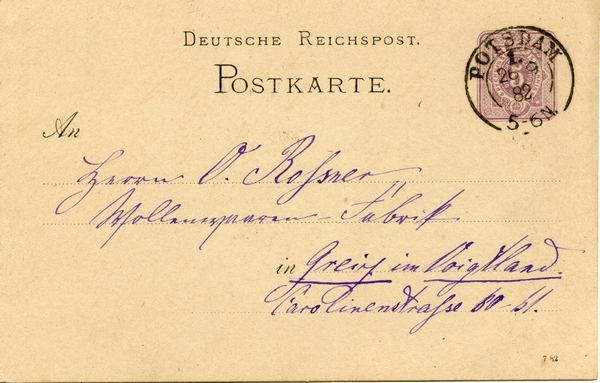 DEUTSCHE REICHSPOST.
POSTKARTE.
POTSDAM
1.
26
82
5-6N.
An
Herrn O. Rossner
Wollenwaaren-Fabrik
in Greiz im Voigtland.
Carolinenstrasse 60-61.
7 82